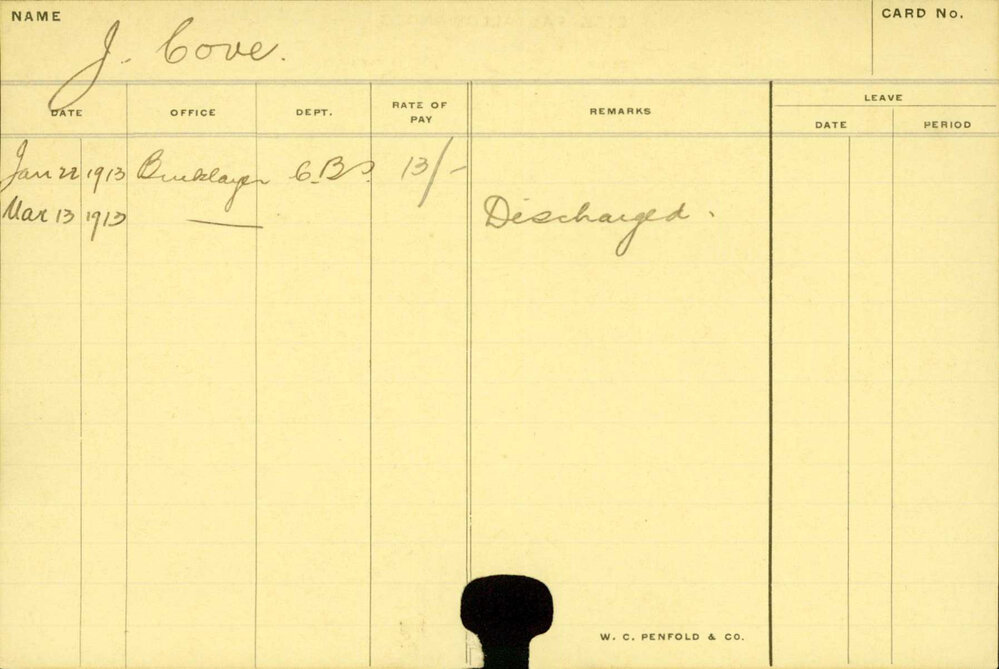 NAME
J. Cove.
CARD No.
DATE OFFICE DEPT. RATE OF PAY REMARKS LEAVE
DATE PERIOD
Jan 22 1913 Bricklayer C.Bs. 13/-
Mar 13 1913 — Discharged.
W. C. PENFOLD & CO.